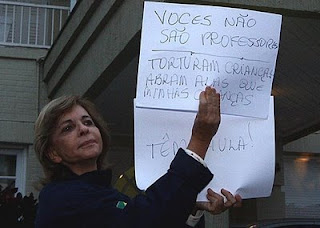 VOCES NÃO
SÃO PROFESSORES
TORTURAM CRIANÇAS
ABRAM ALAS QUE
MINHAS CRIANÇAS
TÊM AULA!